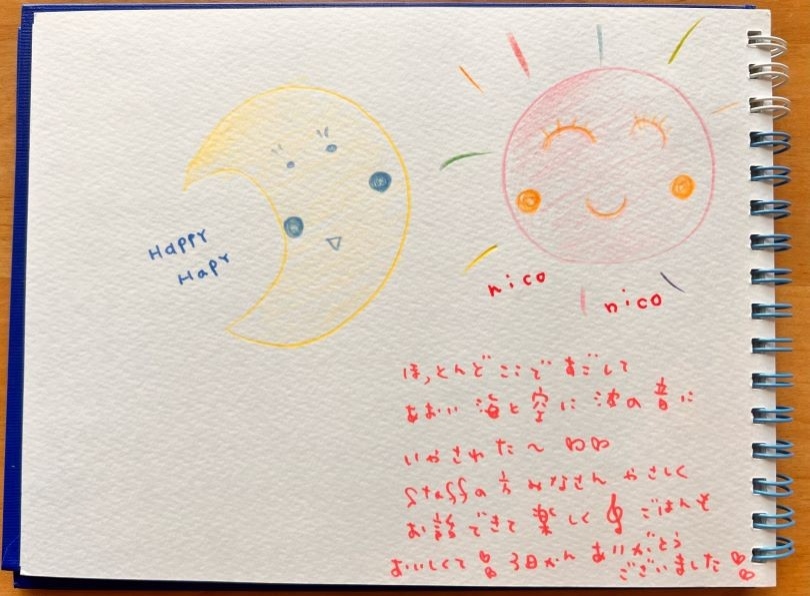 Happy
Hapy
nico
nico
ほとんどここですごして
あおい 海と空に 波の音に
いやされた〜 ♡♡
staffの方みなさん やさしく
お話できて 楽しく ごはんも
おいしくて 3日かん ありがとう
ございました